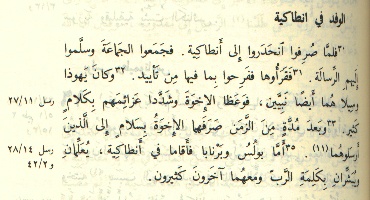 الوفد في انطاكية
٣٠فلمّا صُرِفوا اَنحَدَروا إلى أَنطاكِية. فجَمَعوا الجَماعَةَ وسلَّموا
إليهِمِ الرِسالةَ. ٣١فقَرَأُوها ففرِحوا بِما فيها مِن تَأييد. ٣٢وكانَ يَهوذا
وسِيلا هُما أَيضًا نَبِيَّين، فوَعَظَا الإخوَةَ وشَدَّدا عَزائِمَهم بِكَلامٍ رسل ١١/٢٧
كَثير. ٣٣وبَعدَ مُدَّةٍ مِنَ الزَّمَن صَرَفَهما الإخوَةُ بِسَلام إلى الَّذينَ
أَرسَلوهُما (١١) ٣٥أَمَّا بولُسُ وبَرنابا فأَقاما في أَنطاكِية، يُعَلِّمانِ رسل ١٤/٢٨
ويُبَشِّرانِ بِكَلِمَةِ الرَّبِّ ومعَهُما آخَرونَ كَثيرون. و ٢/٤٢